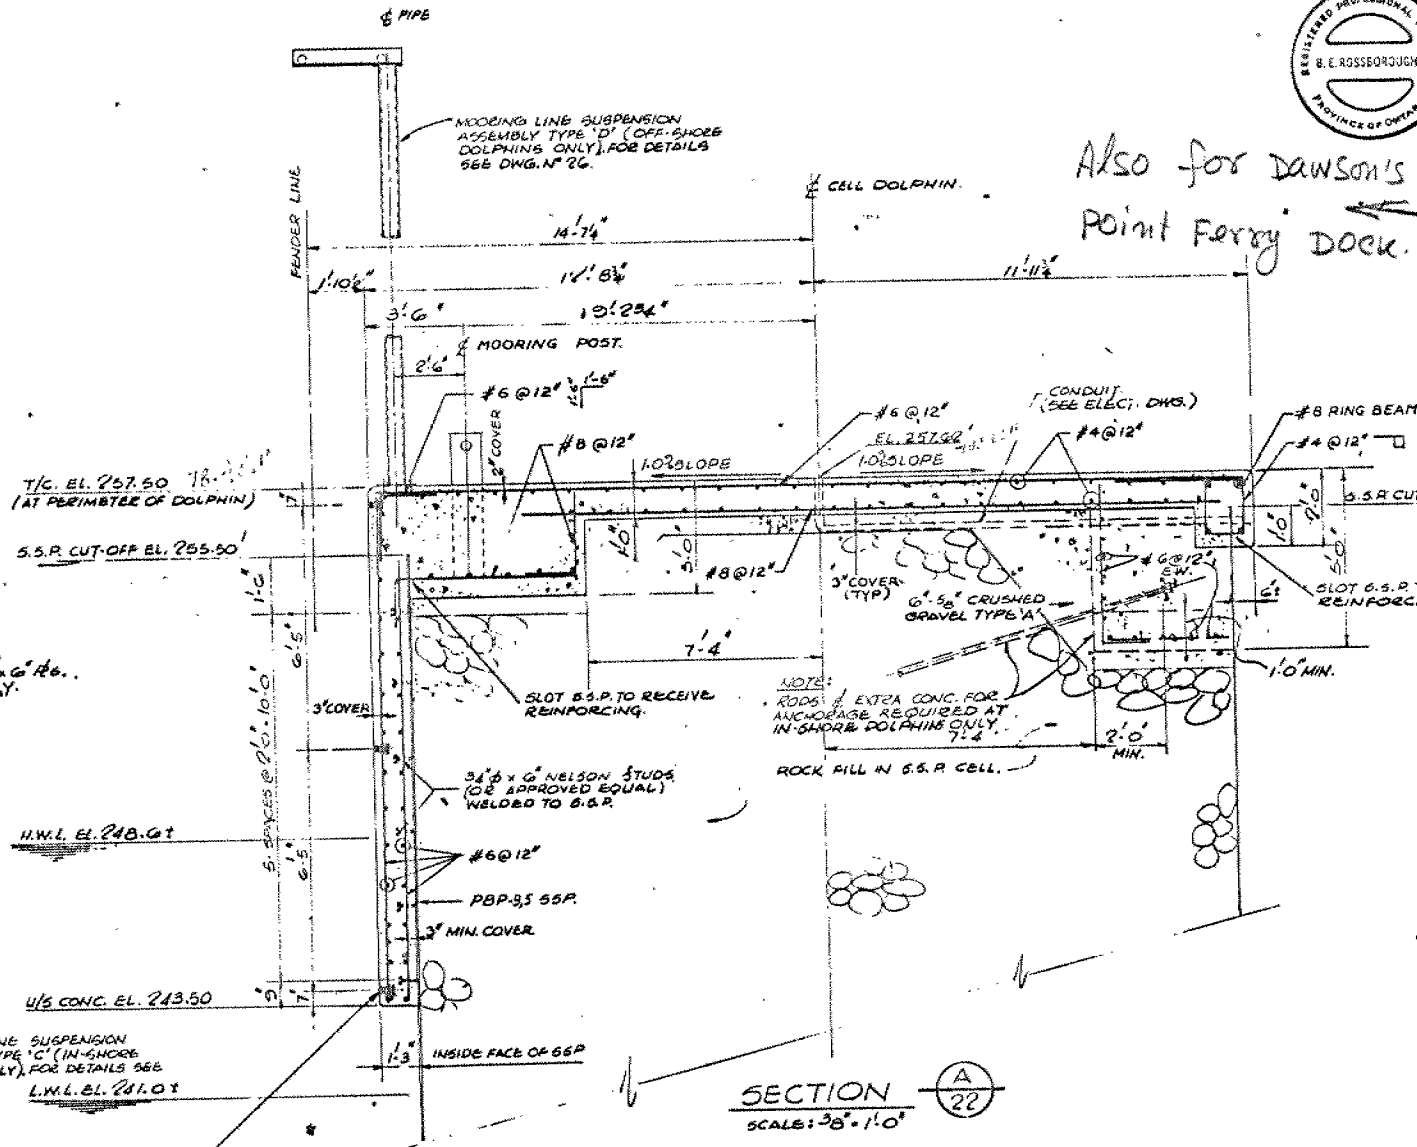 ℄ PIPE
REGISTERED PROFESSIONAL
B. E. ROSSBOROUGH
PROVINCE OF ONTAR
MOORING LINE SUSPENSION
ASSEMBLY TYPE 'D' (OFF-SHORE
DOLPHINS ONLY). FOR DETAILS
SEE DWG. Nº 26.
Also for Dawson's
Point Ferry Dock.
FENDER LINE
℄ CELL DOLPHIN.
14'-7¼"
1'-10½"
11'-11¼"
3'-6"
℄ MOORING POST.
2'-6"
#6 @ 12"
1'-6"
1'-6"
2" COVER
#8 @ 12"
#6 @ 12"
EL. 257.62
CONDUIT
(SEE ELEC. DWG.)
#4 @ 12"
#8 RING BEAM
#4 @ 12"
1.0% SLOPE
1.0% SLOPE
T/C. EL. 257.50
(AT PERIMETER OF DOLPHIN)
7"
S.S.P. CUT
S.S.P. CUT-OFF EL. 255.50
1'-0"
3'-0"
1'-0"
2'-0"
5'-0"
#8 @ 12"
3" COVER
(TYP)
6"-5/8" CRUSHED
GRAVEL TYPE 'A'
#6 @ 12"
E.W.
6"±
SLOT S.S.P. T
REINFORC
1'-0" MIN.
1'-6"
6'-5"
7'-4"
x 6" ℞s.
Y.
3" COVER
SLOT S.S.P. TO RECEIVE
REINFORCING.
NOTE:
RODS & EXTRA CONC. FOR
ANCHORAGE REQUIRED AT
IN-SHORE DOLPHINS ONLY.
7'-4"
2'-0"
MIN.
ROCK FILL IN S.S.P. CELL.
¾"ø x 6" NELSON STUDS
(OR APPROVED EQUAL)
WELDED TO S.S.P.
5 SPACES @ 2'-0" = 10'-0"
H.W.L. EL. 248.6±
6'-5"
#6 @ 12"
PBP-3,5 SSP.
3" MIN. COVER
9"
7"
U/S CONC. EL. 243.50
NE SUSPENSION
YPE 'C' (IN-SHORE
LY). FOR DETAILS SEE
1'-3"
INSIDE FACE OF SSP
L.W.L. EL. 241.0±
SECTION
A
22
SCALE: 3/8" = 1'-0"